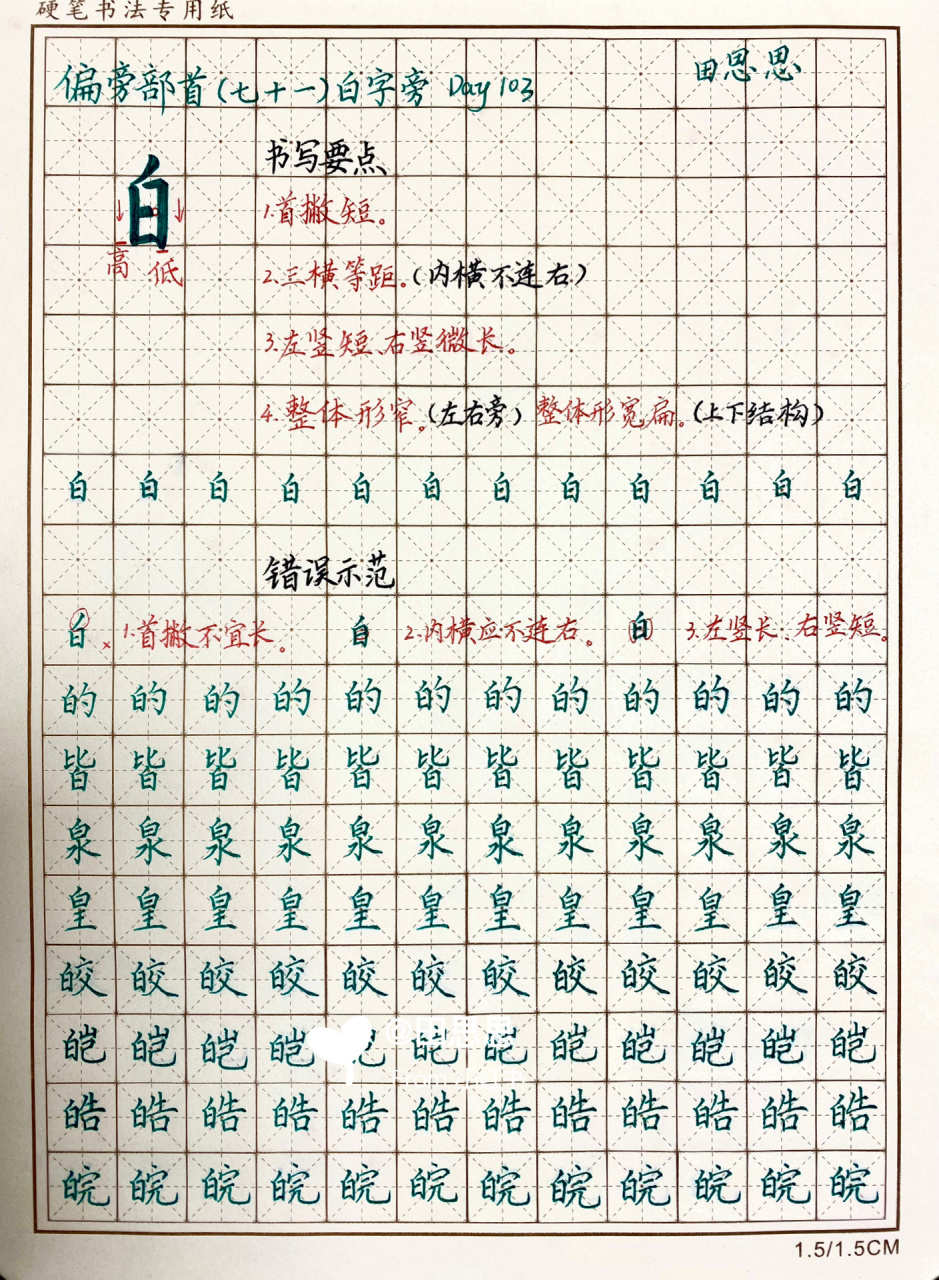 硬笔书法专用纸
偏旁部首(七十一)白字旁 Day 103
田思思
书写要点
白
高 低
1.首撇短。
2.三横等距。(内横不连右)
3.左竖短、右竖微长。
4.整体形窄。(左右旁) 整体形宽扁。(上下结构)
白 白 白 白 白 白 白 白 白 白 白 白
错误示范
白 × 1.首撇不宜长。 白 2.内横应不连右。 白 3.左竖长、右竖短。
的 的 的 的 的 的 的 的 的 的 的 的
皆 皆 皆 皆 皆 皆 皆 皆 皆 皆 皆 皆
泉 泉 泉 泉 泉 泉 泉 泉 泉 泉 泉 泉
皇 皇 皇 皇 皇 皇 皇 皇 皇 皇 皇 皇
皎 皎 皎 皎 皎 皎 皎 皎 皎 皎 皎 皎
皑 皑 皑 皑 皑 皑 皑 皑 皑 皑 皑 皑
@田思思
皓 皓 皓 皓 皓 皓 皓 皓 皓 皓 皓 皓
皖 皖 皖 皖 皖 皖 皖 皖 皖 皖 皖 皖
1.5/1.5CM